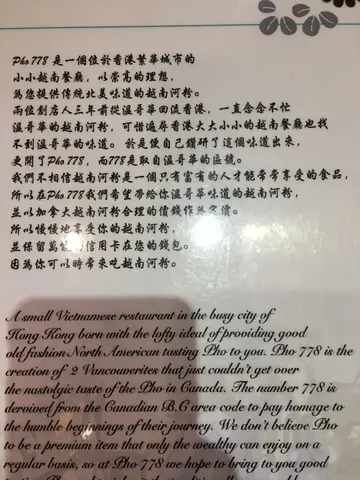 Pho 778 是一個位於香港繁華城市的
小小越南餐廳，以崇高的理想，
為您提供傳統北美味道的越南河粉。
兩位創店人三年前從溫哥華回流香港，一直念念不忙
溫哥華的越南河粉，可惜遍尋香港大大小小的越南餐廳也找
不到溫哥華的味道。於是便自己鑽研了這個味道出來，
更開了Pho 778，而778是取自溫哥華的區號。
我們不相信越南河粉是一個只有富有的人才能常常享受的食品，
所以在Pho 778我們希望帶給你溫哥華味道的越南河粉，
並以加拿大越南河粉合理的價錢作為定價。
所以慢慢地享受你的越南河粉，
並保留萬 信用卡在您的錢包。
因為你可以時常來吃越南河粉。
A small Vietnamese restaurant in the busy city of
Hong Kong born with the lofty ideal of providing good
old fushion North American tasting Pho to you. Pho 778 is the
creation of 2 Vancouverites that just couldn't get over
the nastolgic taste of the Pho in Canada. The number 778 is
deroived from the Canadian B.C area code to pay homage to
the humble beginnings of their journey. We don't believe Pho
to be a premium item that only the wealthy can enjoy on a
regular basis, so at Pho 778 we hope to bring to you good